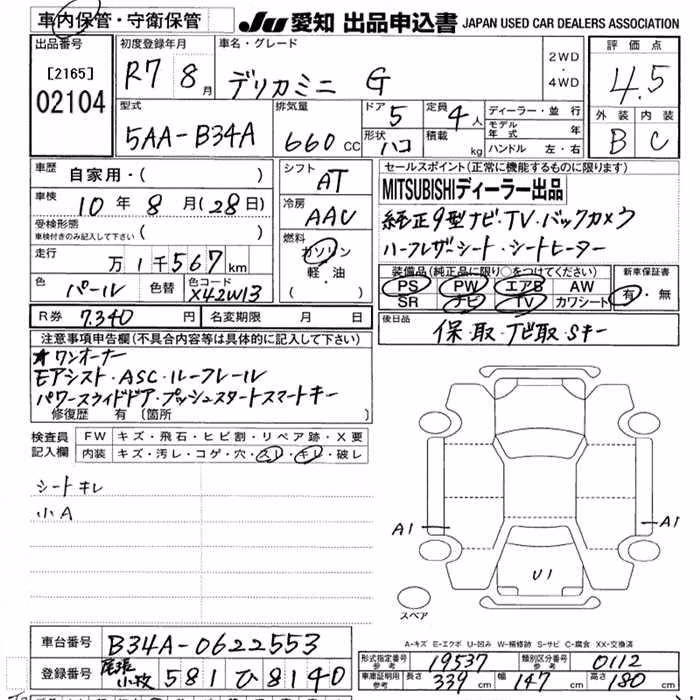 車内保管・守衛保管 JU 愛知 出品申込書 JAPAN USED CAR DEALERS ASSOCIATION
出品番号 初度登録年月 車名・グレード 評価点
[2165] R7 8月 デリカミニ G 2WD・4WD 4.5
02104 型式 排気量 ドア 定員 ディーラー・並行 外装 内装
5AA-B34A 660 CC 5 4人 モデル年式 年 B C
形状 ハコ 積載 kg ハンドル 左・右
車歴 自家用・( ) シフト AT セールスポイント(正常に機能するものに限ります)
車検 10年8月(28日) 冷房 AAC MITSUBISHIディーラー出品
受検形態 純正9型ナビ・TV・バックカメラ
車検付きのみ記入して下さい ( ) 燃料 ハーフレザーシート・シートヒーター
走行 万1千567km ガソリン 装備品(純正品に限り○をつけてください) 新車保証書
軽・油 PS PW エアB AW 有・無
色 パール 色替 色コード X42W13 ( ) SR ナビ TV カワシート
R券 7.340円 名変期限 月 日 後日品
保・取・ナビ取・Sキー
注意事項申告欄(不具合内容等は具体的に記入して下さい)
★ワンオーナー
モアシスト・ASC・ルーフレール
パワースライドドア・プッシュスタートスマートキー
修復歴 有 [箇所 ]
検査員 FW キズ・飛石・ヒビ割・リペア跡・X要
記入欄 内装 キズ・汚レ・コゲ・穴・スレ・キレ・破レ
シートキレ
小A
A1 A1
U1
スペア
A-キズ E-エクボ U-凹み W-補修跡 S-サビ C-腐食 XX-交換済
車台番号 B34A-0622553
登録番号 尾張小牧 581 ひ 8140
形式指定番号 参考 19537 類別区分番号 参考 0112
車庫証明用 参考 長さ 339 cm 幅 147 cm 高さ 180 cm